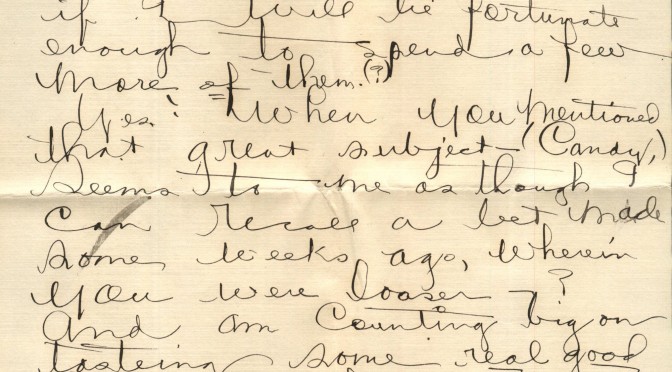 if I will be fortunate
enough to spend a few
more of them.(?)
Yes! When you mentioned
that great subject - (Candy,)
seems to me as though I
can recall a bet made
some weeks ago, wherein
you were looser ?
And am Counting big on
tasteing some real good